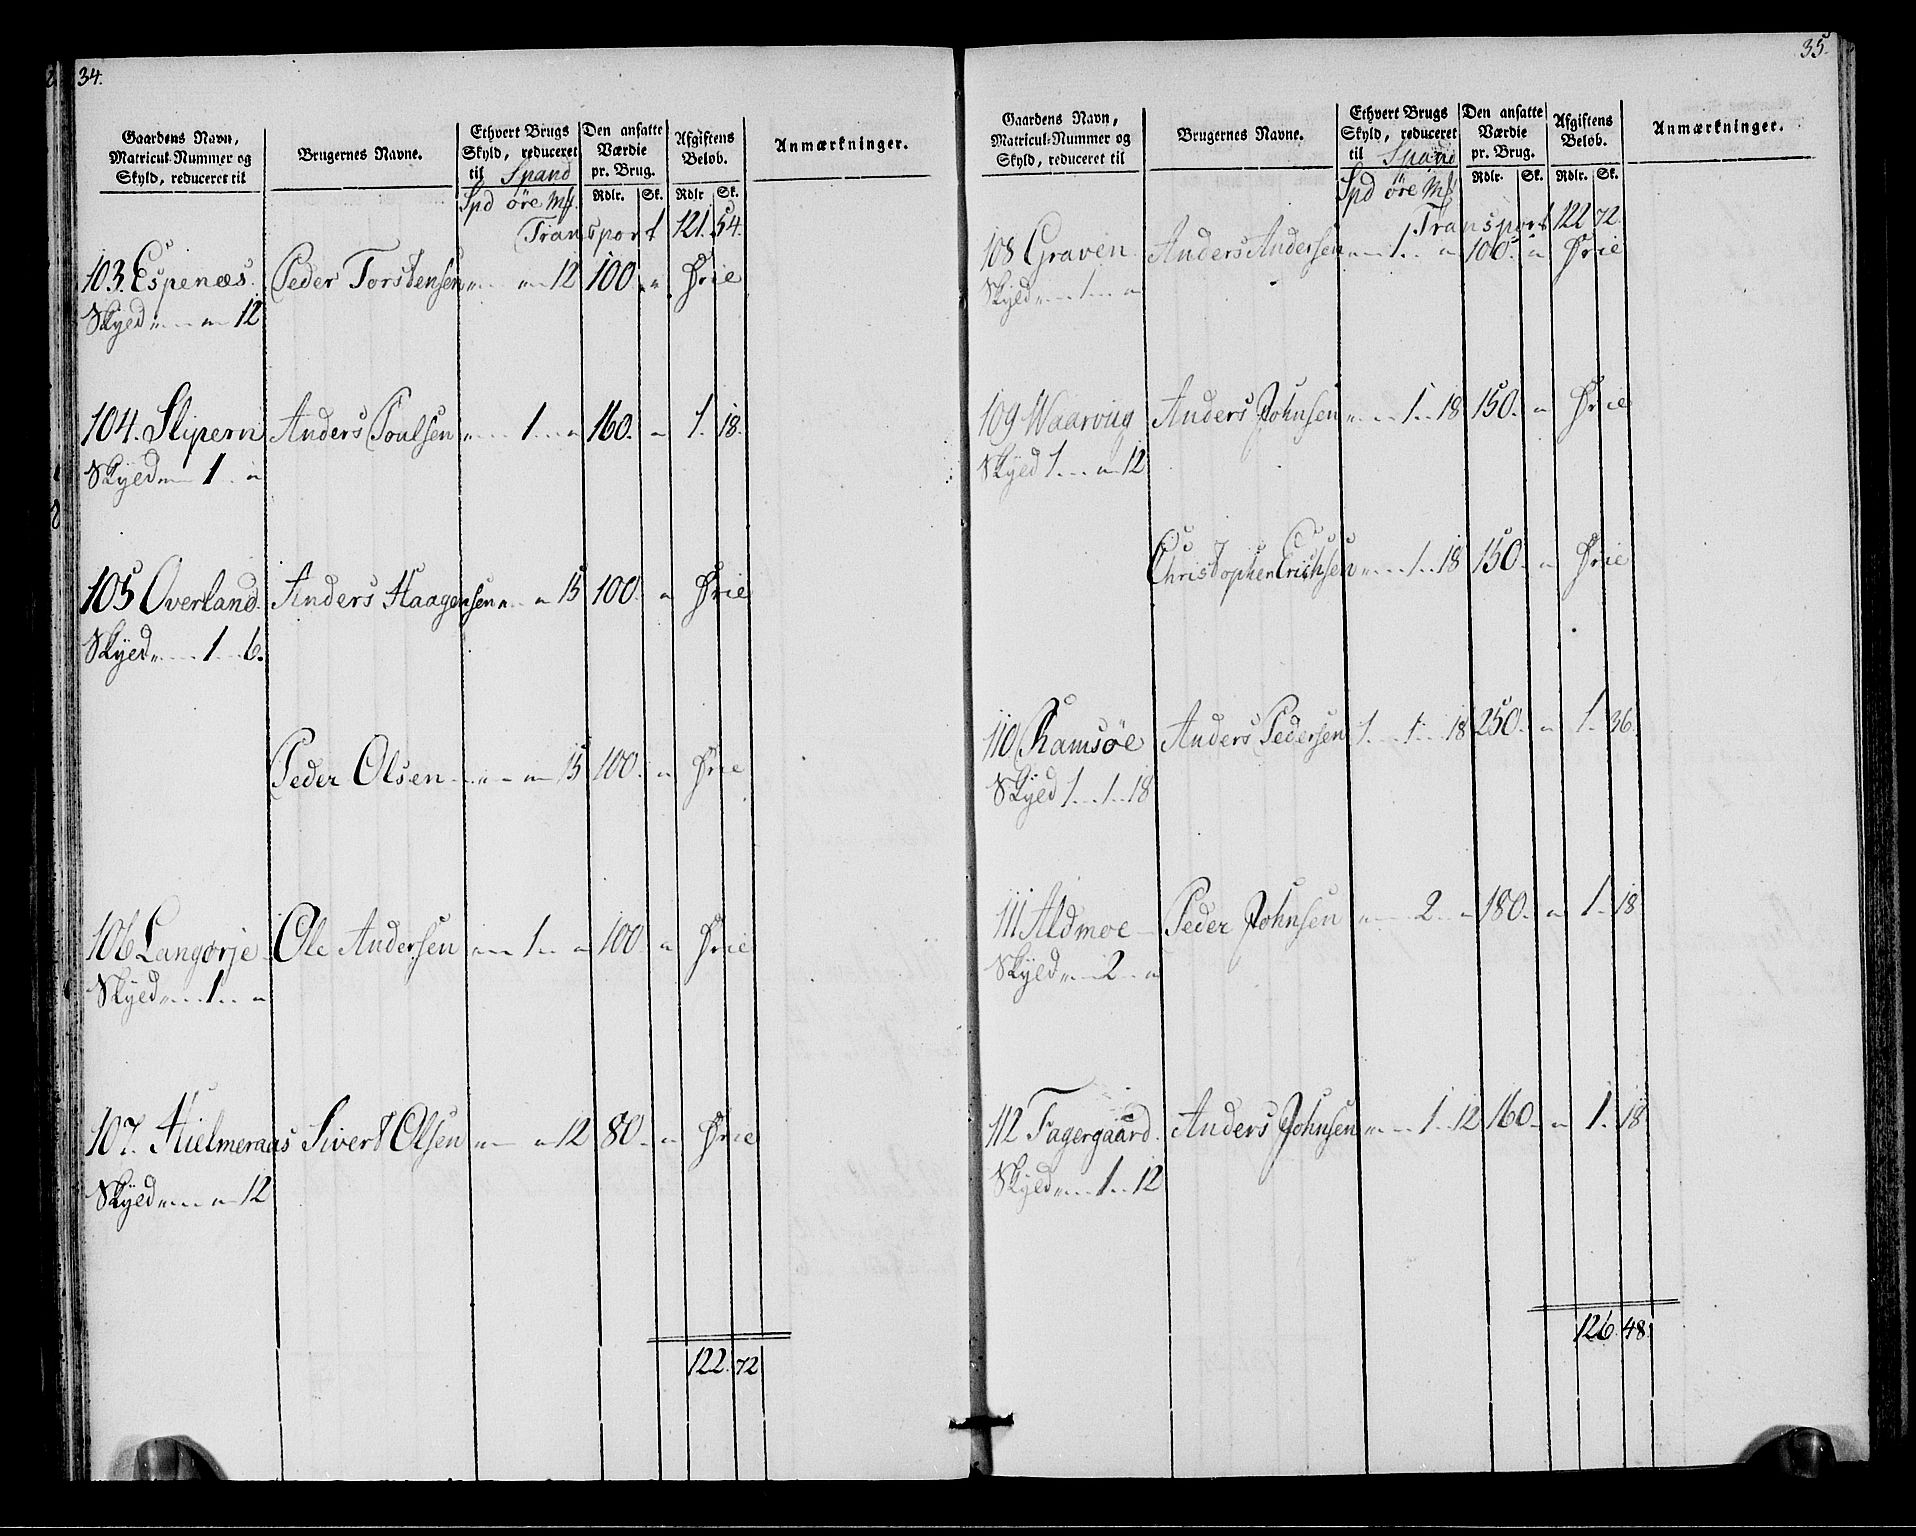 34.
Gaardens Navn, Matricul-Nummer og Skyld, reduceret til | Brugernes Navne. | Ethvert Brugs Skyld, reduceret til Spand | Den ansatte Værdie pr. Brug. | Afgiftens Beløb. | Anmærkninger.
Spd øre Mk | Rdlr. | Sk. | Rdlr | Sk.
Transport 121. 54.
103. Espenæs. Peder Torstensen " " 12 100. " Frie
Skyld " " 12
104. Slipern Anders Poulsen " 1 " 160. " 1. 18.
Skyld " 1 "
105 Overland. Anders Haagensen " " 15 100. " Frie
Skyld " 1 6.
Peder Olsen " " 15 100. " Frie
106 Langørje Ole Andersen " 1 " 100. " Frie
Skyld " 1 "
107. Hielmeraas Sivert Olsen " " 12 80. " Frie
Skyld " " 12
122. 72
35.
Gaardens Navn, Matricul-Nummer og Skyld, reduceret til | Brugernes Navne. | Ethvert Brugs Skyld, reduceret til Spand | Den ansatte Værdie pr. Brug. | Afgiftens Beløb. | Anmærkninger.
Spd øre Mk | Rdlr. | Sk. | Rdlr. | Sk.
Transport 122 72.
108 Graven Anders Andersen " 1 " 100. " Frie
Skyld " 1 "
109 Waarvug Anders Johnsen " 1 18 150. " Frie
Skyld 1 " 12
Christopher Erichsen " 1 18 150. " Frie
110 Ramsøe Anders Pedersen 1 1 18 250. " 1. 36.
Skyld 1 1 18
111 Aldmoe Peder Johnsen " 2 " 180. " 1. 18
Skyld " 2 "
112 Fagergaard. Anders Johnsen " 1 12 160. " 1. 18
Skyld " 1 12
126. 48.